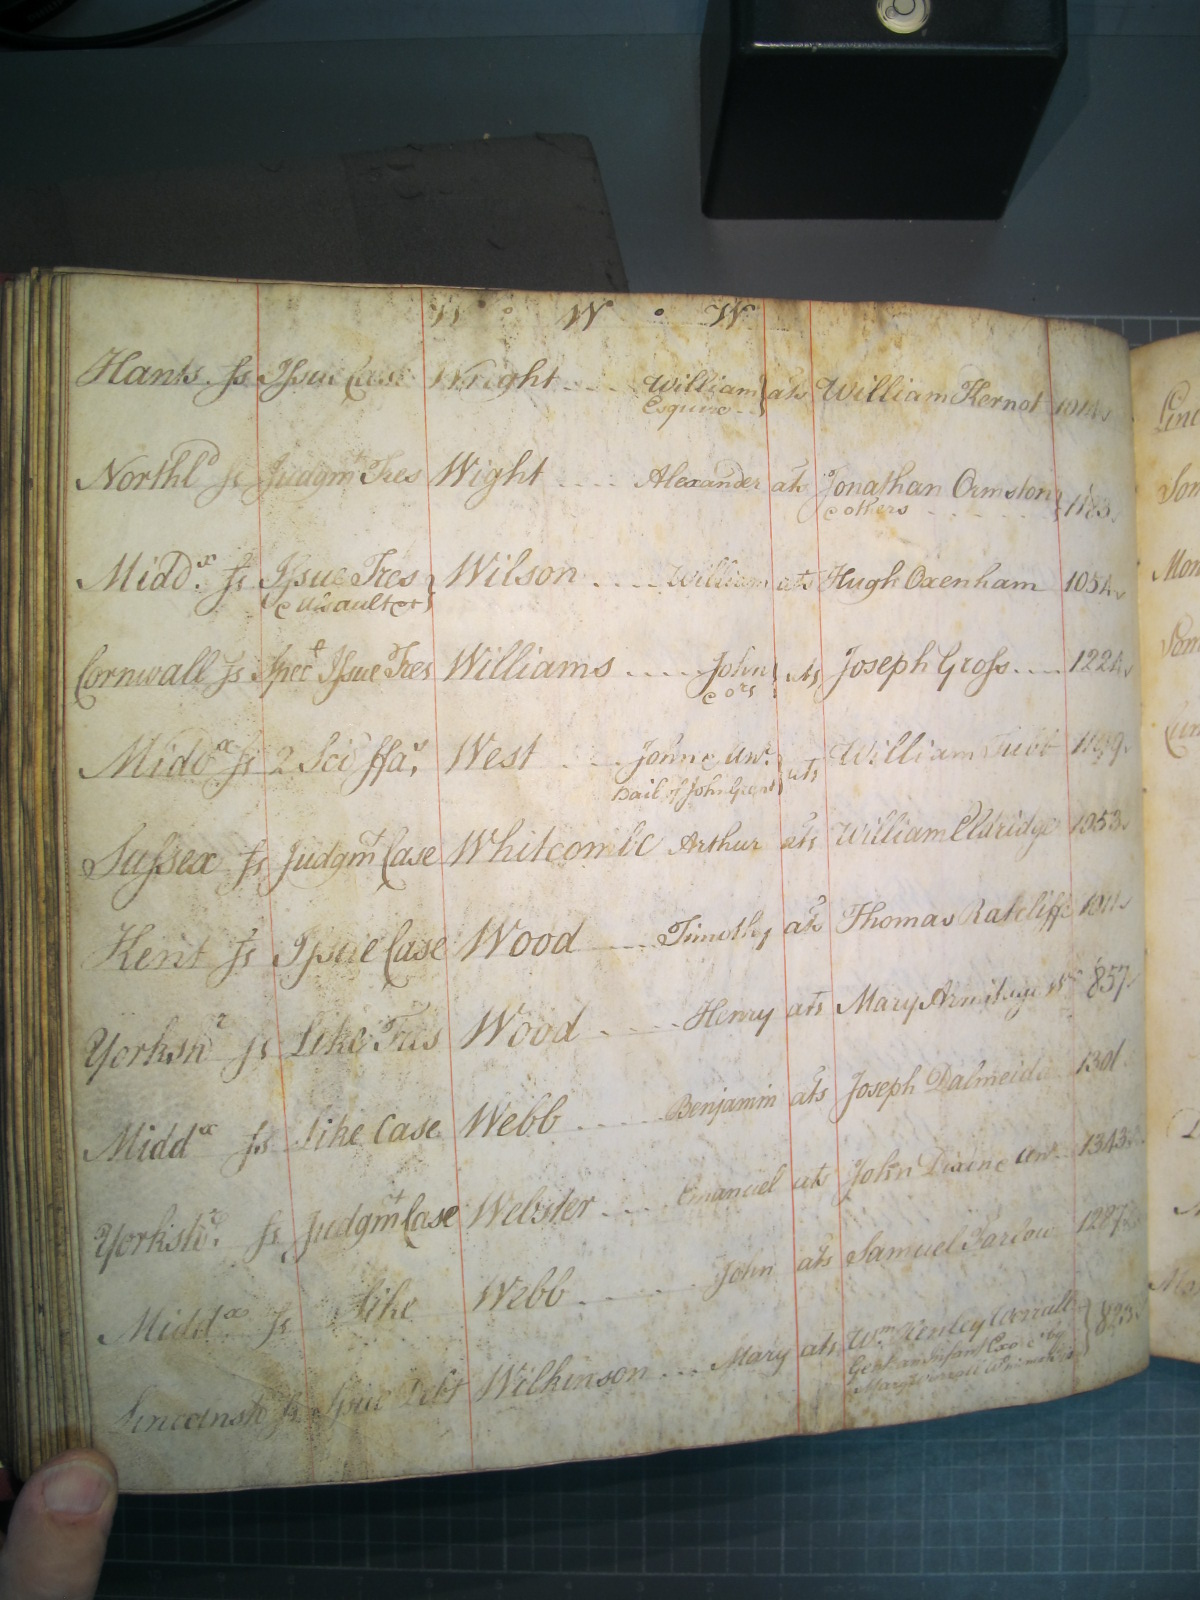 W • W • W
Hants ss Issue Case Wright .... William Esquire } ats William Kernot
Northld ss Judgmt Tres Wight .... Alexander ats Jonathan Ormston & others } 1183
Middx ss Issue Tres & Assault &c } Wilson .... William ats Hugh Oxenham 1054
Cornwall ss Specl Issue Tres Williams .... John & ors } ats Joseph Gross .... 1224
Middx ss 2 Sci ffas West .... John & anr Bail of John Grant } ats William Tubb
Sussex ss Judgmt Case Whitcombe Arthur ats William Eldridge 1053
Kent ss Issue Case Wood .... Timothy ats Thomas Ratcliffe
Yorkshr ss Like Tres Wood .... Henry ats Mary Armitage 857
Middx ss Like Case Webb .... Benjamin ats Joseph Dalmeida 1301
Yorkshr ss Judgmt Case Webster .... Emanuel ats John Dixon & anr 1343
Middx ss Like Webb .... John ats Samuel Barlow 1287
Lincolnsh ss Issue Debt Wilkinson .... Mary ats Wm Henley Gent an Infant by Mary